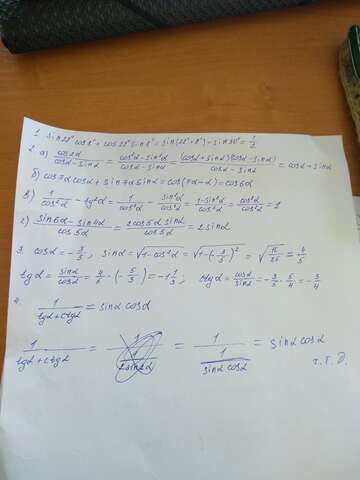 1. sin 22° cos 8° + cos 22° sin 8° = sin(22°+8°) = sin 30° = 1/2
2. а) cos2α/(cosα - sinα) = (cos²α - sin²α)/(cosα - sinα) = (cosα + sinα)(cosα - sinα)/(cosα - sinα) = cosα + sinα
б) cos7α cosα + sin7α sinα = cos(7α - α) = cos6α
в) 1/cos²α - tg²α = 1/cos²α - sin²α/cos²α = (1 - sin²α)/cos²α = cos²α/cos²α = 1
г) (sin6α - sin4α)/cos5α = 2cos5α sinα/cos5α = 2sinα
3. cosα = -3/5, sinα = √(1 - cos²α) = √(1 - (3/5)²) = √(16/25) = 4/5
tgα = sinα/cosα = 4/5 · (-5/3) = -1 1/3; ctgα = cosα/sinα = -3/5 · 5/4 = -3/4
4. 1/(tgα + ctgα) = sinα cosα
1/(tgα + ctgα) = = 1/(1/(sinα cosα)) = sinα cosα
ч.т.д.